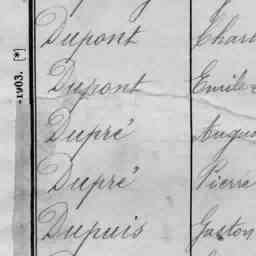 -1903. [*]
Dupont
Dupont Emile
Dupré
Dupré Pierre
Dupuis Gaston